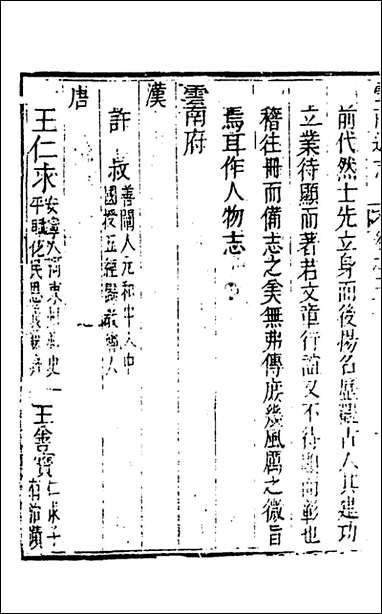 前代然士先立身而後揚名歷觀古人其建功
立業待顯而著若文章行誼又不待顯而彰也
稽往冊而備志之矣無弗傳庶幾風厲之微旨
焉耳作人物志
雲南府
漢
許叔 善闡人元和中入中
國授五經歸教鄉人
唐
王仁求 安寧人河東州刺史
平賦化民思
王善寶 仁求子
有前蹟